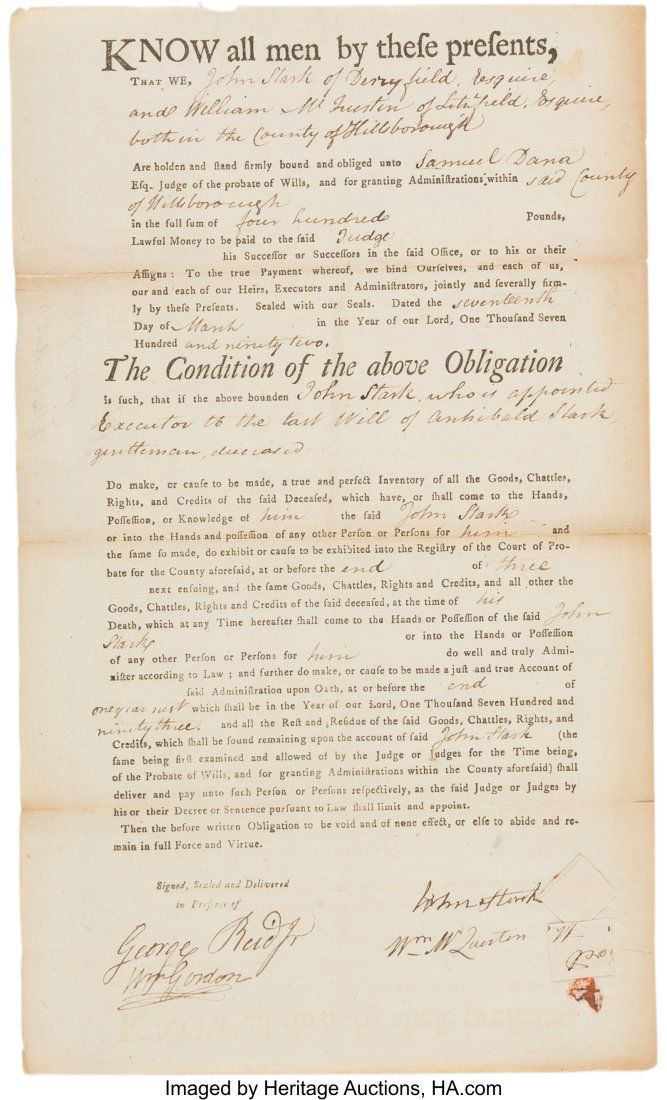 KNOW all men by theſe preſents,
THAT WE, John Stark of Derryfield, Esquire,
and William McQuestin of Litchfield, Esquire,
both in the County of Hillsborough
Are holden and ſtand firmly bound and obliged unto Samuel Dana
Eſq. Judge of the probate of Wills, and for granting Adminiſtrations within said County
of Hillsborough
in the full ſum of four hundred Pounds,
Lawful Money to be paid to the ſaid Judge
his Succeſſor or Succeſſors in the ſaid Office, or to his or their
Aſſigns: To the true Payment whereof, we bind Ourſelves, and each of us,
our and each of our Heirs, Executors and Adminiſtrators, jointly and ſeverally firm-
ly by theſe Preſents. Sealed with our Seals. Dated the seventeenth
Day of March in the Year of our Lord, One Thouſand Seven
Hundred and ninety two.
The Condition of the above Obligation
Is ſuch, that if the above bounden John Stark, who is appointed
Executor to the last Will of Archibald Stark
gentleman, deceased
Do make, or cauſe to be made, a true and perfect Inventory of all the Goods, Chattles,
Rights, and Credits of the ſaid Deceaſed, which have, or ſhall come to the Hands,
Poſſeſſion, or Knowledge of him the ſaid John Stark
or into the Hands and poſſeſſion of any other Perſon or Perſons for him and
the ſame ſo made, do exhibit or cauſe to be exhibited into the Regiſtry of the Court of Pro-
bate for the County aforeſaid, at or before the end of three
next enſuing, and the ſame Goods, Chattles, Rights and Credits, and all other the
Goods, Chattles, Rights and Credits of the ſaid deceaſed, at the time of his
Death, which at any Time hereafter ſhall come to the Hands or Poſſeſſion of the ſaid John
Stark or into the Hands or Poſſeſſion
of any other Perſon or Perſons for him do well and truly Admi-
niſter according to Law; and further do make, or cauſe to be made a juſt and true Account of
ſaid Adminiſtration upon Oath, at or before the end of
one year next which ſhall be in the Year of our Lord, One Thouſand Seven Hundred and
ninety three. and all the Reſt and Reſidue of the ſaid Goods, Chattles, Rights, and
Credits, which ſhall be found remaining upon the account of ſaid John Stark (the
ſame being firſt examined and allowed of by the Judge or Judges for the Time being,
of the Probate of Wills, and for granting Adminiſtrations within the County aforeſaid) ſhall
deliver and pay unto ſuch Perſon or Perſons reſpectively, as the ſaid Judge or Judges by
his or their Decree or Sentence purſuant to Law ſhall limit and appoint.
Then the before written Obligation to be void and of none effect, or elſe to abide and re-
main in full Force and Virtue.
Signed, Sealed and Delivered
in Preſence of
John Stark
George Reid Jr
Wm McQuestin
Wm Gordon
Imaged by Heritage Auctions, HA.com